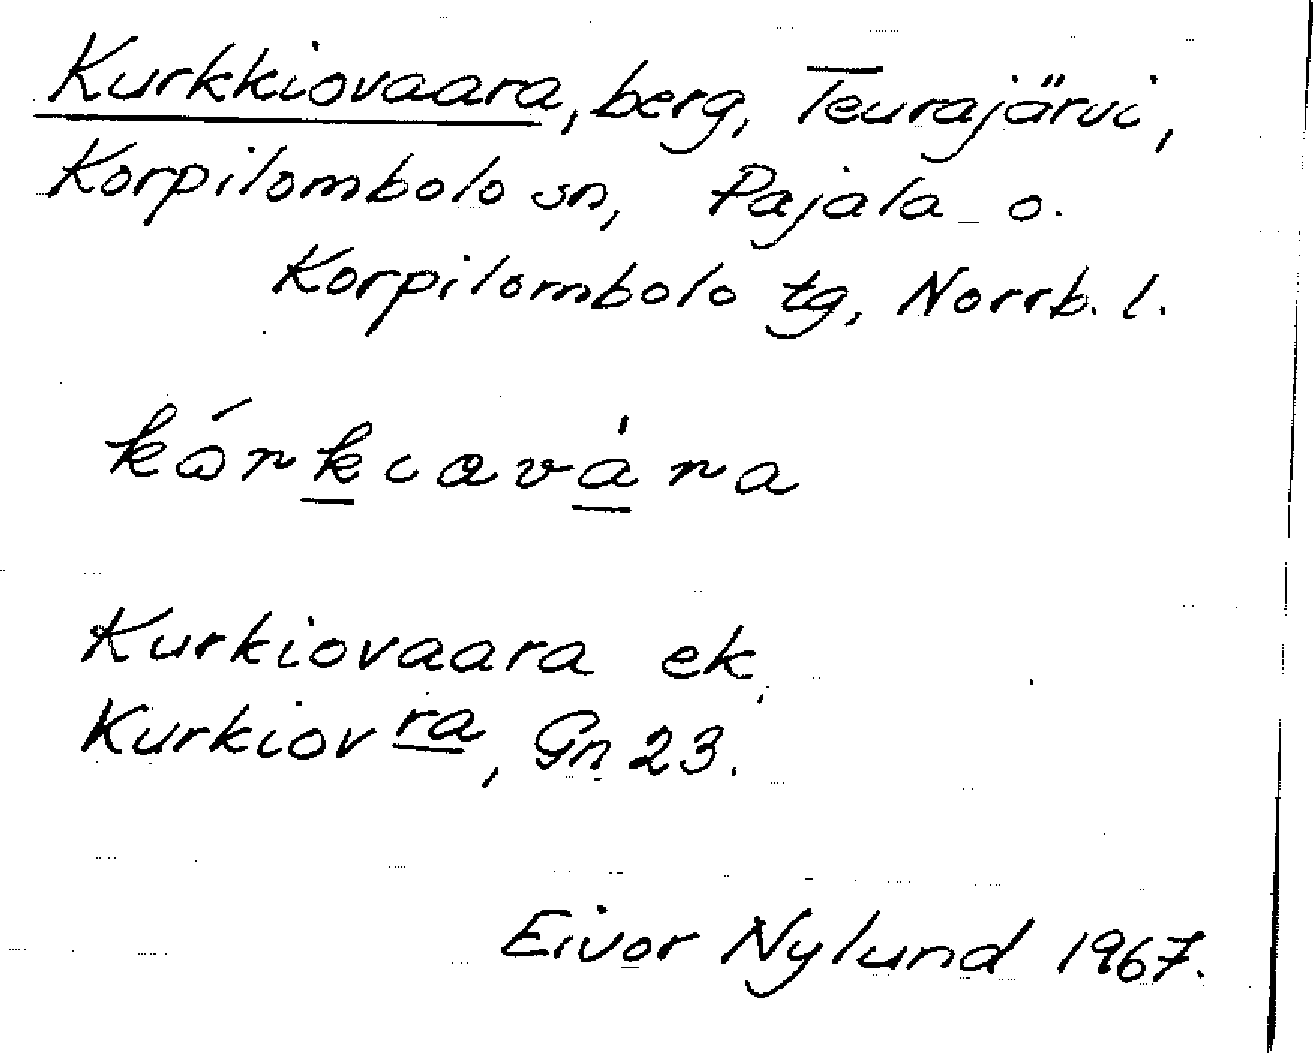 Kurkkiovaara, berg, Teurajärvi,
Korpilombolo sn, Pajala o.
Korpilombolo tg, Norrb. l.
Kurkiovaara ek,
Kurkiov ra, Gn 23.
Eivor Nylund 1967.